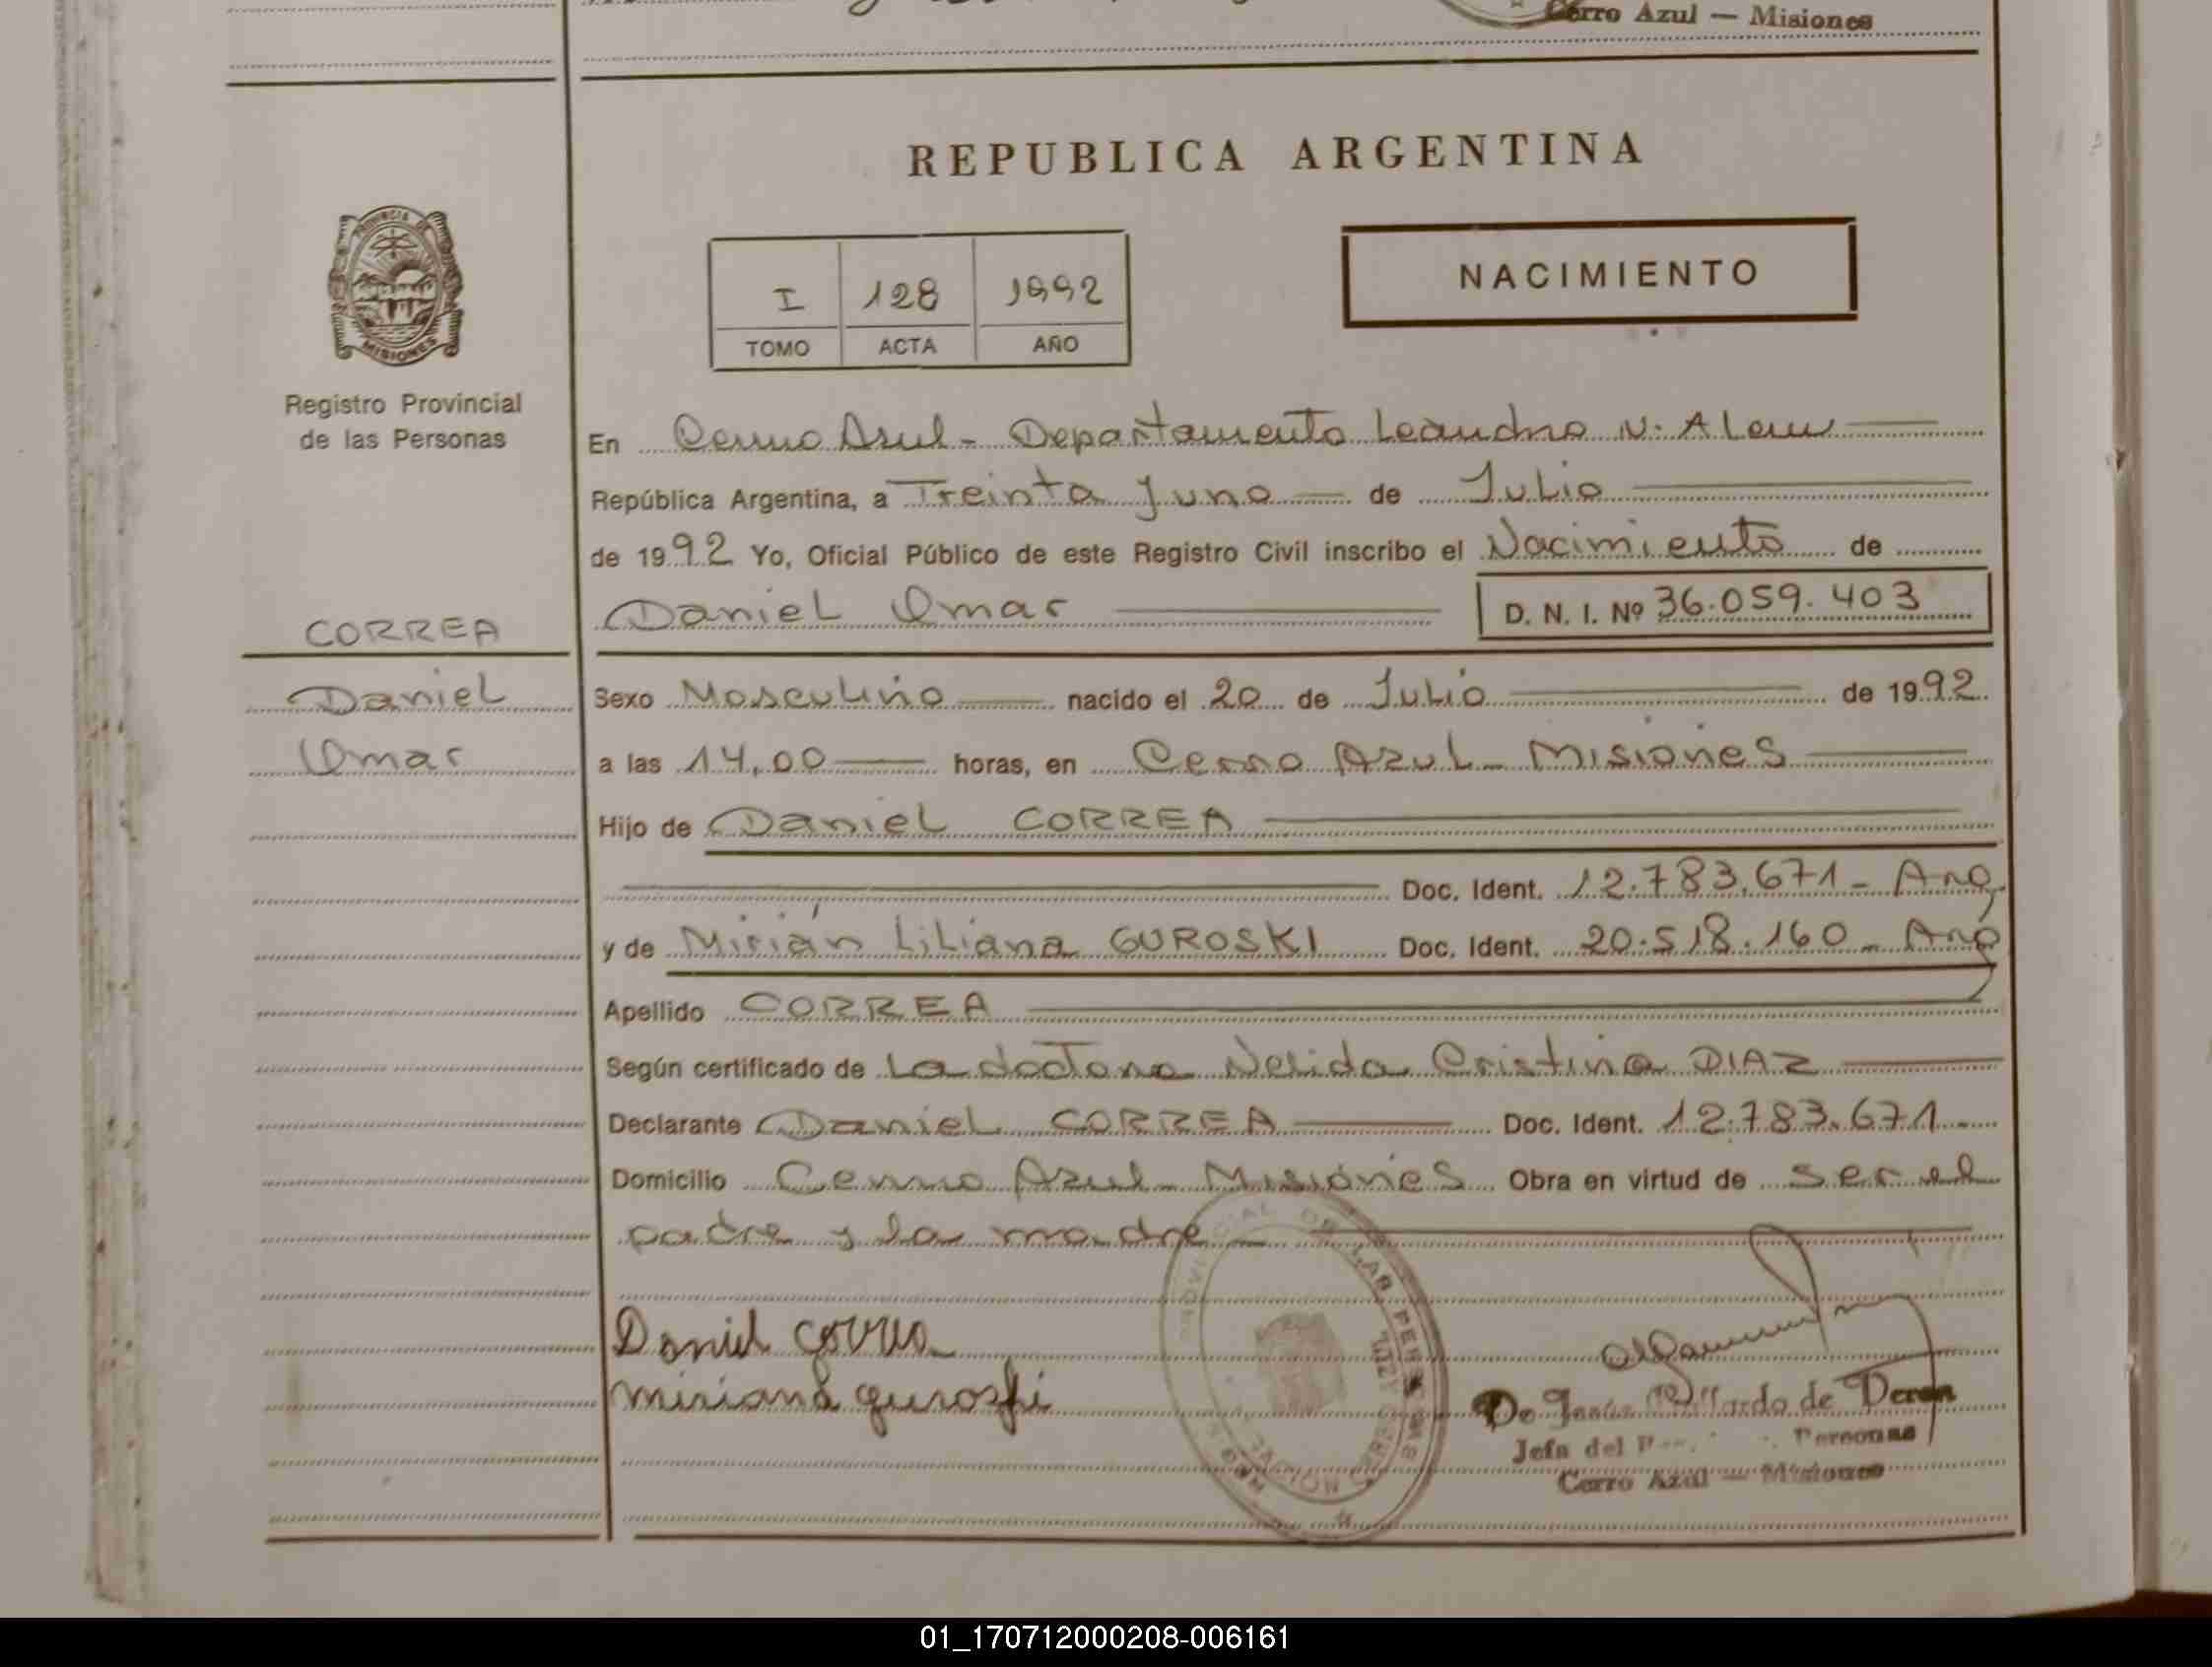 Cerro Azul — Misiones
REPUBLICA ARGENTINA
PROVINCIA DE
MISIONES
Registro Provincial
de las Personas
I 128 1992
TOMO ACTA AÑO
NACIMIENTO
En Cerro Azul - Departamento Leandro N. Alem
República Argentina, a Treinta y uno de Julio
de 1992 Yo, Oficial Público de este Registro Civil inscribo el Nacimiento de
Daniel Omar D. N. I. Nº 36.059.403
CORREA
Daniel
Omar
Sexo Masculino nacido el 20 de Julio de 1992.
a las 14,00 horas, en Cerro Azul - Misiones
Hijo de Daniel CORREA
Doc. Ident. 12.783.671 - Arg
y de Mirian Liliana GUROSKI Doc. Ident. 20.518.160 - Arg
Apellido CORREA
Según certificado de La doctora Nelida Cristina DIAZ
Declarante Daniel CORREA Doc. Ident. 12.783.671.-
Domicilio Cerro Azul - Misiones Obra en virtud de ser el
padre y la madre
Daniel Correa
miriana guroski
PROVINCIAL DE LAS PERSONAS
de Deran
Jefa del Personas
Cerro Azul — Misiones
01_170712000208-006161